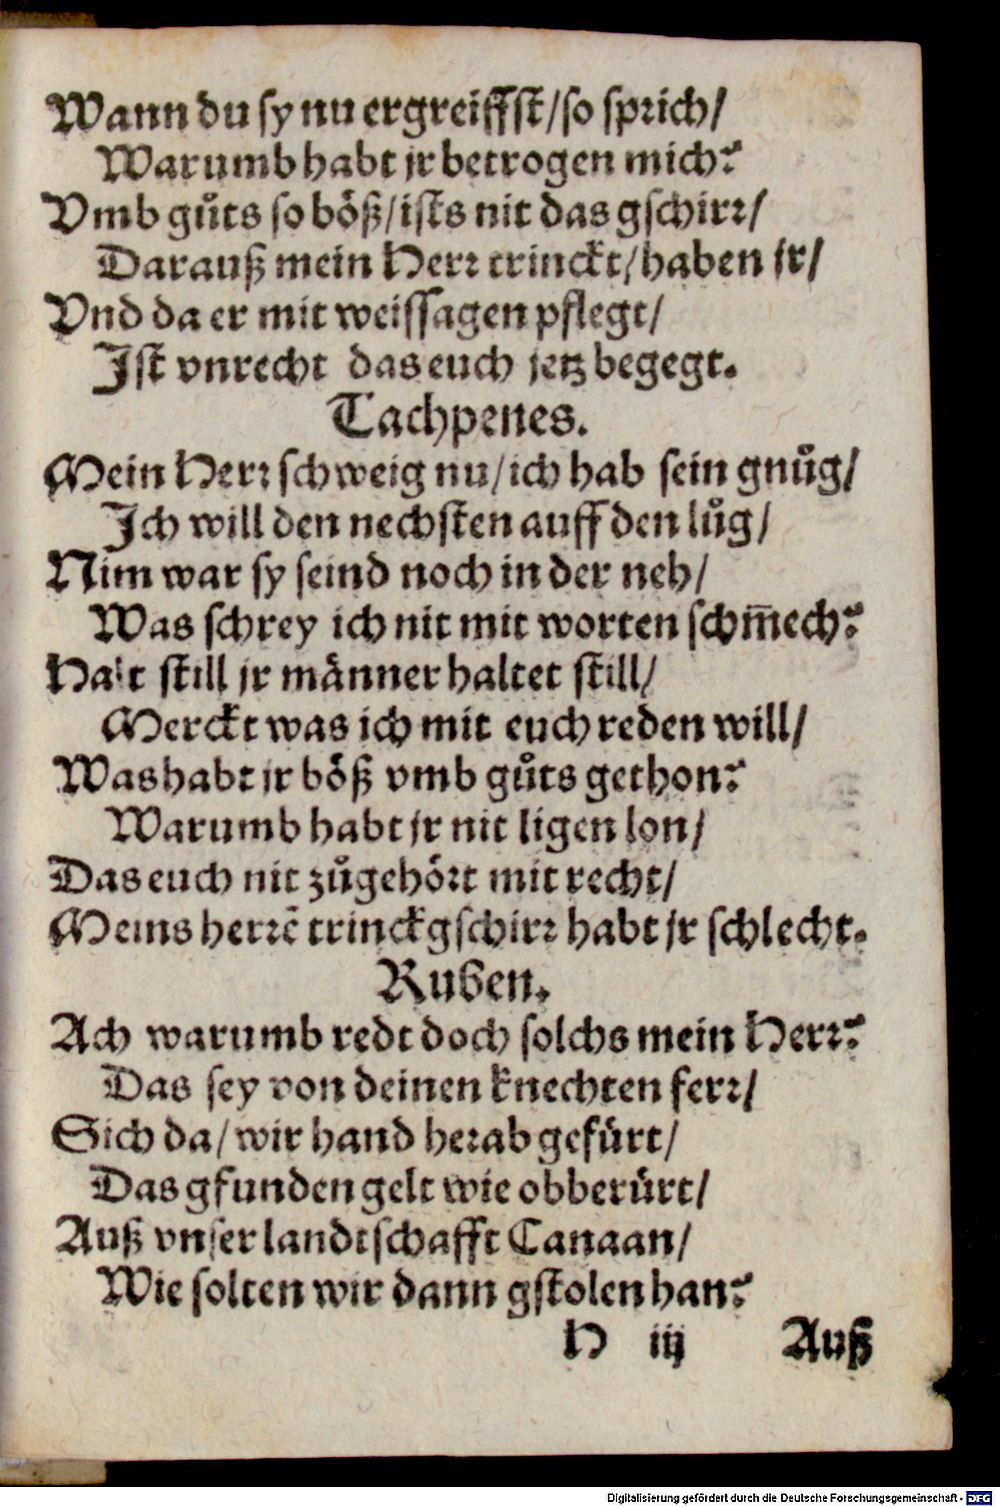 Wann du sy nu ergreiffst/so sprich/
Warumb habt jr betrogen mich?
Vmb gůts so böß/ists nit das gschirr/
Darauß mein Herr trinckt/haben jr/
Vnd da er mit weissagen pflegt/
Ist vnrecht das euch jetz begegt.
Tachpenes.
Mein Herr schweig nu/ich hab sein gnůg/
Ich will den nechsten auff den lůg/
Nim war sy seind noch in der neh/
Was schrey ich nit mit worten schm̄ech?
Halt still jr männer haltet still/
Merckt was ich mit euch reden will/
Was habt jr böß vmb gůts gethon?
Warumb habt jr nit ligen lon/
Das euch nit zůgehört mit recht/
Meins herrē trinckgschirr habt jr schlecht.
Ruben.
Ach warumb redt doch solchs mein Herr?
Das sey von deinen knechten ferr/
Sich da/wir hand herab gefürt/
Das gfunden gelt wie obberürt/
Auß vnser landtschafft Canaan/
Wie solten wir dann gstolen han?
H iij Auß
Digitalisierung gefördert durch die Deutsche Forschungsgemeinschaft - DFG